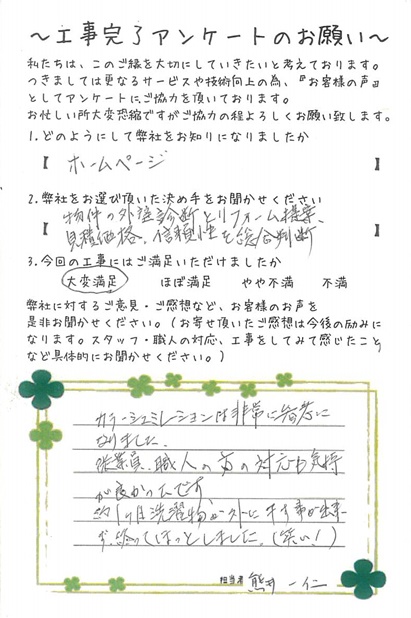 ～工事完了アンケートのお願い～
私たちは、このご縁を大切にしていきたいと考えております。
つきましては更なるサービスや技術向上の為、『お客様の声』
としてアンケートにご協力を頂いております。
お忙しい所大変恐縮ですがご協力の程よろしくお願い致します。
1.どのようにして弊社をお知りになりましたか
【 ホームページ 】
2.弊社をお選び頂いた決め手をお聞かせください
物件の外装診断とリフォーム提案、
【 見積価格、信頼性を総合判断 】
3.今回の工事にはご満足いただけましたか
大変満足 ほぼ満足 やや不満 不満
弊社に対するご意見・ご感想など、お客様のお声を
是非お聞かせください。(お寄せ頂いたご感想は今後の励みに
なります。スタッフ・職人の対応、工事をしてみて感じたこと
など具体的にお聞かせください。)
カラーシュミレーションは非常に参考に
なりました。
従業員、職人の方の対応も気持
が良かったです。
約1ヶ月洗濯物が外に干す事が出来
ず、終ってほっとしました。(笑い!)
担当者 熊井 一仁